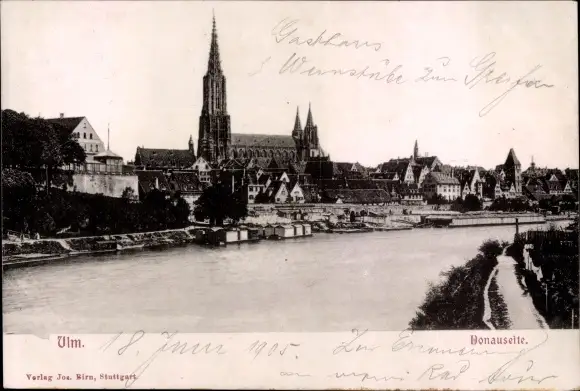 Gasthaus
Weinstube zum Greifen
Ulm.
Donauseite.
18. Juni 1905. Zur Erinnerung
an meine Rad
Verlag Jos. Birn, Stuttgart.